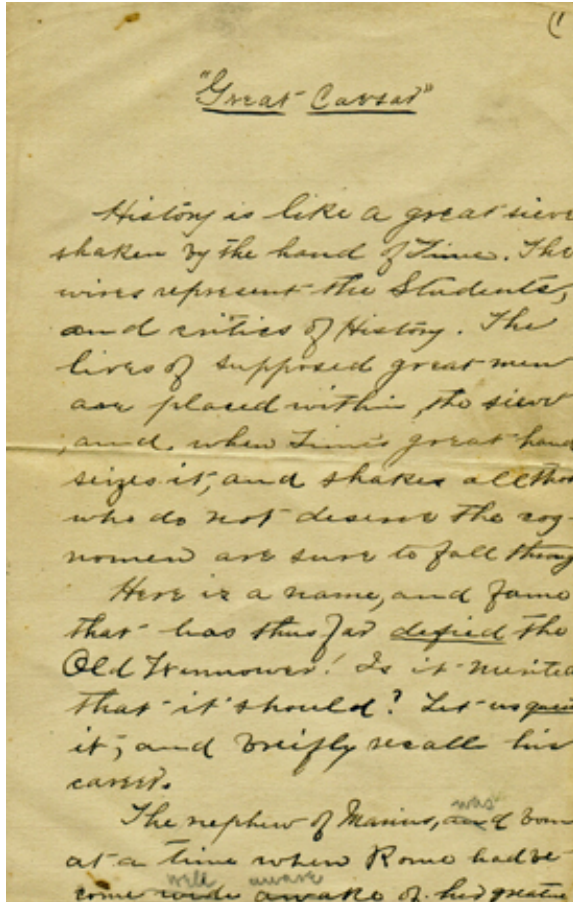 (1
"Great Caesar"
History is like a great sieve
shaken by the hand of Time. The
wires represent the Students,
and critics of History. The
lives of supposed great men
are placed within, the sieve
, and, when Time's great hand
seizes it, and shakes all thos
who do not deserve the cog-
nomen are sure to fall throug
Here is a name, and fame
that has thus far defied the
Old Winnower! Is it merited
that it should? Let us
it, and breifly recall his
career.
was
The nephew of Marius, and born
at a time when Rome had be-
well aware
come wide awake of her